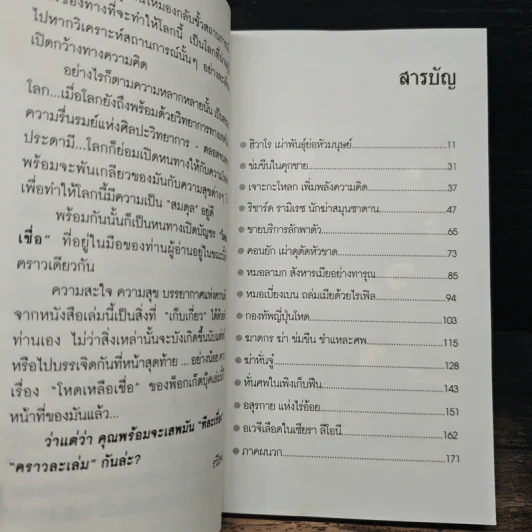 ของทางที่จะทำให้โลกนี้ เป็นโลกที่น่า
ไปหากวิเคราะห์สถานการณ์นั้นๆ อย่าง
เปิดกว้างทางความคิด
อย่างไรก็ตามความหลากหลายนั้น เป็น
โลก...เมื่อโลกยังถึงพร้อมด้วยวิทยาการทาง
ความรื่นรมย์แห่งศิลปะวิทยาการ - ตลอดจน
ประดามี...โลกก็ย่อมเปิดหนทางให้กับความ
พร้อมจะพันเกลียวของมันกับความสุขต่างๆ
เพื่อทำให้โลกนี้มีความเป็น "สมดุล" อยู่ดี
พร้อมกันนั้นก็เป็นหนทางเปิดบัญชร
เชื่อ" ที่อยู่ในมือของท่านผู้อ่านอยู่ใน
คราวเดียวกัน
ความสะใจ ความสุข บรรยากาศแห่ง
จากหนังสือเล่มนี้เป็นสิ่งที่ "เก็บเกี่ยว" ได้
ท่านเอง ไม่ว่าสิ่งเหล่านั้นจะบังเกิดขึ้นนับแต่
หรือไปบรรเจิดกันที่หน้าสุดท้าย ... อย่างน้อย
เรื่อง "โหดเหลือเชื่อ" ของพ็อกเก็ตบุ๊คเล่มนี้
หน้าที่ของมันแล้ว...
ว่าแต่ว่า คุณพร้อมจะเสพมัน "ทีละเรื่อง"
"คราวละเล่ม" กันล่ะ?
สารบัญ
ฮิวาโร เผ่าพันธุ์ย่อหัวมนุษย์ 11
ข่มขืนในคุกชาย 31
เจาะกะโหลก เพิ่มพลังความคิด 37
ริชาร์ด รามิเรซ นักฆ่าสมุนซาตาน 47
ขายบริการลักพาตัว 65
คอนยัก เผ่าดุตัดหัวขาด 73
หมอลามก สังหารเมียอย่างทารุณ 85
หมอเบี่ยงเบน ถล่มเมียด้วยไรเฟิล 94
กองทัพญี่ปุ่นโหด 103
ฆาตกร ฆ่า ข่มขืน ชำแหละศพ 115
ฆ่าหั่นจู๋ 128
หั่นศพในเพิงเก็บฟืน 143
อสุรกาย แห่งไร่อ้อย 151
อเวจีเลือดในเซียรา ลีโอนี 162
ภาคผนวก 171